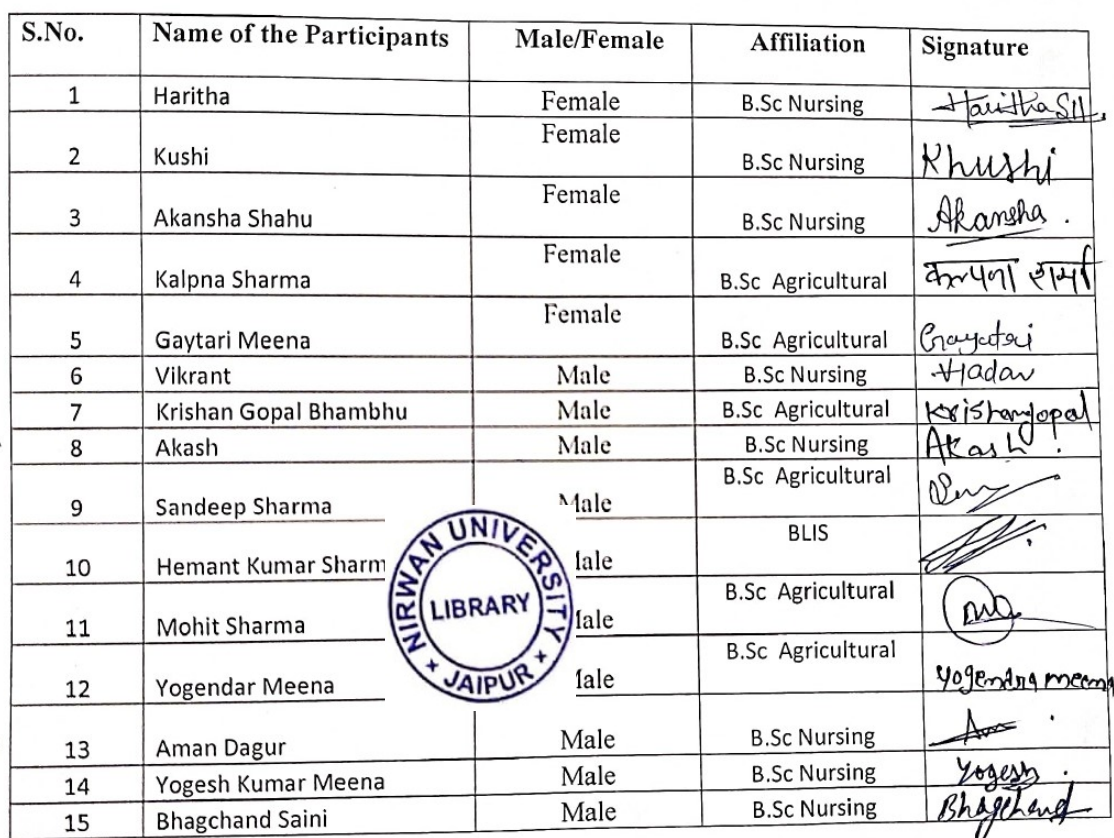 S.No. Name of the Participants Male/Female Affiliation Signature
1 Haritha Female B.Sc Nursing Haritha SH.
2 Kushi Female B.Sc Nursing Khushi
3 Akansha Shahu Female B.Sc Nursing Akansha .
4 Kalpna Sharma Female B.Sc Agricultural कल्पना शर्मा
5 Gaytari Meena Female B.Sc Agricultural Gayatri
6 Vikrant Male B.Sc Nursing
7 Krishan Gopal Bhambhu Male B.Sc Agricultural Krishangopal
8 Akash Male B.Sc Nursing Akash .
9 Sandeep Sharma Male B.Sc Agricultural
10 Hemant Kumar Sharm ale BLIS
11 Mohit Sharma ale B.Sc Agricultural
12 Yogendar Meena ale B.Sc Agricultural Yogendra meena
13 Aman Dagur Male B.Sc Nursing
14 Yogesh Kumar Meena Male B.Sc Nursing Yogesh .
15 Bhagchand Saini Male B.Sc Nursing Bhagchand
NIRWAN UNIVERSITY
LIBRARY
* JAIPUR *